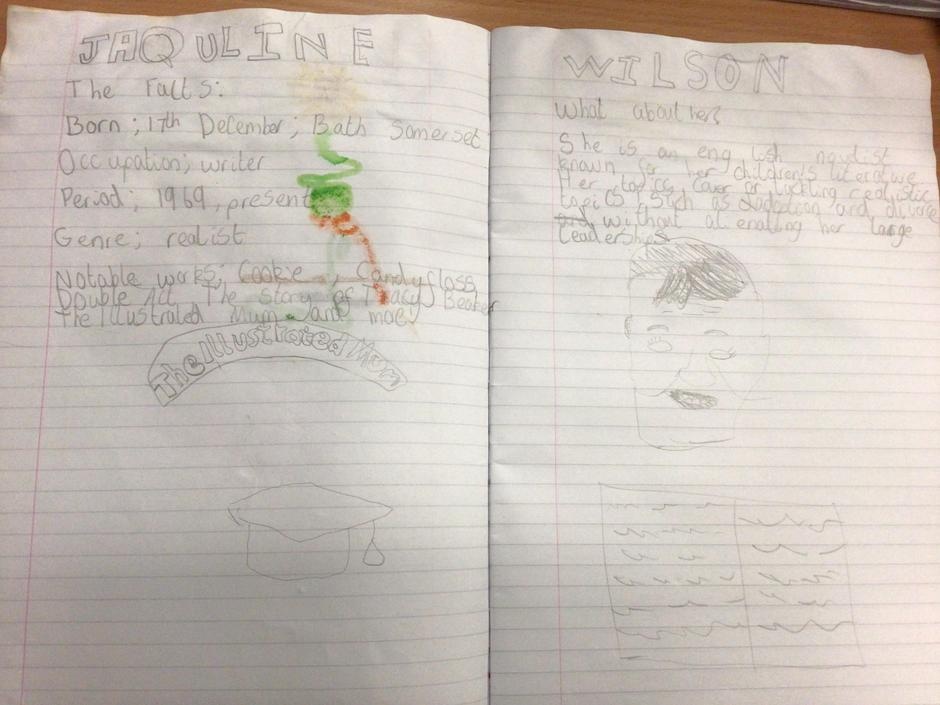 JAQULINE
The Facts:
Born ; 17th December ; Bath Somerset
Occupation; writer
Period ; 1969 , present
Genre ; realist
Notable works; Cookie , Candyfloss,
Double Act The story of Tracy Beaker
The Illustrated Mum and more
The Illustrated Mum
WILSON
What about her?
She is an english novelist
known for her children's literature
Her topics cover or tackling realistic
topics such as adoption and divorce
and without alienating her large
Leaderships